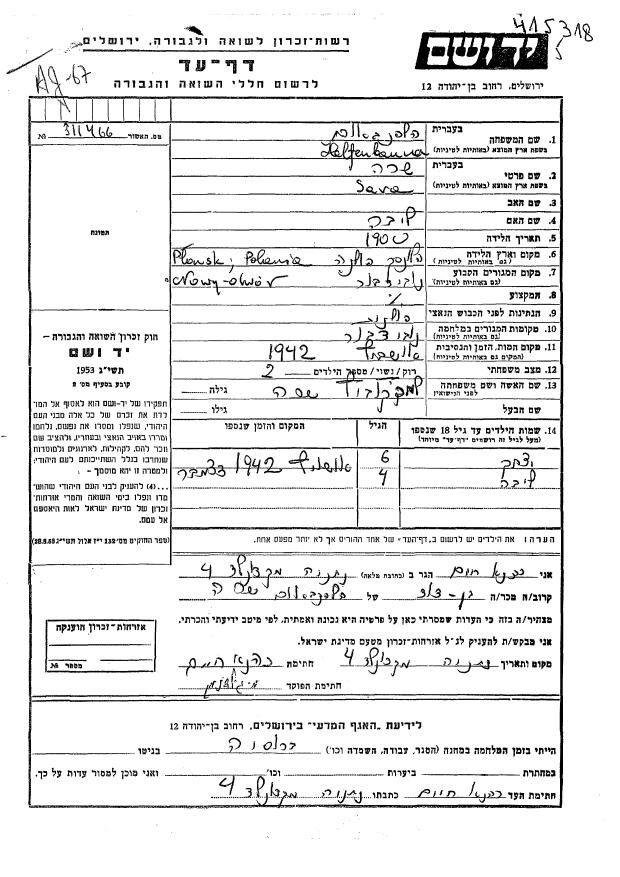 415318
יד ושם
ירושלים, רחוב בן-יהודה 12
רשות-זכרון לשואה ולגבורה, ירושלים
דף-עד
לרשום חללי השואה והגבורה
מס. האשור 311466 №
תמונה
1. שם המשפחה בעברית
בשפת ארץ המוצא (באותיות לטיניות)
2. שם פרטי בעברית שרה
בשפת ארץ המוצא (באותיות לטיניות) Sara
3. שם האב
4. שם האם ליבה
5. תאריך הלידה 1900
6. מקום וארץ הלידה (גם באותיות לטיניות) Plonsk; Polania
7. מקום המגורים הקבוע (גם באותיות לטיניות) Nowy-dwór
8. המקצוע
9. הנתינות לפני הכבוש הנאצי
10. מקומות המגורים במלחמה (גם באותיות לטיניות)
11. מקום המות, הזמן והנסיבות (המקום גם באותיות לטיניות) אושוויץ 1942
12. מצב משפחתי רוק/נשוי/מספר הילדים 2
13. שם האשה ושם משפחתה לפני הנישואין גילה
שם הבעל גילו
14. שמות הילדים עד גיל 18 שנספו
(מעל לגיל זה רושמים "דף-עד" מיוחד)
הגיל
המקום והזמן שנספו
יצחק 6 אושוויץ 1942 דצמבר
ליבה 4
הערה: את הילדים יש לרשום ב„דף-העד" של אחד ההורים אך לא יותר מפעם אחת.
חוק זכרון השואה והגבורה –
יד ושם
תשי"ג 1953
קובע בסעיף מס' 2
תפקידו של יד-ושם הוא לאסוף אל המו־
לדת את זכרם של כל אלה מבני העם
היהודי, שנפלו ומסרו את נפשם, נלחמו
ומרדו באויב הנאצי ובעוזריו, ולהציב שם
וזכר להם, לקהילות, לארגונים ולמוסדות
שנחרבו בגלל השתייכותם לעם היהודי,
ולמטרה זו יהא מוסמך –
...(4) להעניק לבני העם היהודי שהוש־
מדו ונפלו בימי השואה והמרי אזרחות־
זכרון של מדינת ישראל לאות היאספם
אל עמם.
(ספר החוקים מס' 132 י"ז אלול תשי"ג 28.8.53)
אני כהנא חיים הגר ב (כתובת מלאה) נתניה 4
קרוב/ה מכר/ה של
מצהיר/ה בזה כי העדות שמסרתי כאן על פרטיה היא נכונה ואמתית, לפי מיטב ידיעתי והכרתי.
אני מבקש/ת להעניק לנ"ל אזרחות-זכרון מטעם מדינת ישראל.
מקום ותאריך נתניה 4 חתימה כהנא חיים
חתימת הפוקד
אזרחות-זכרון הוענקה
מספר №
לידיעת „האגף המדעי" בירושלים, רחוב בן-יהודה 12
הייתי בזמן המלחמה במחנה (הסגר, עבודה, השמדה וכו') בגיטו
במחתרת ביערות וכו' ואני מוכן למסור עדות על כך.
חתימת העד כהנא חיים כתבתו נתניה 4